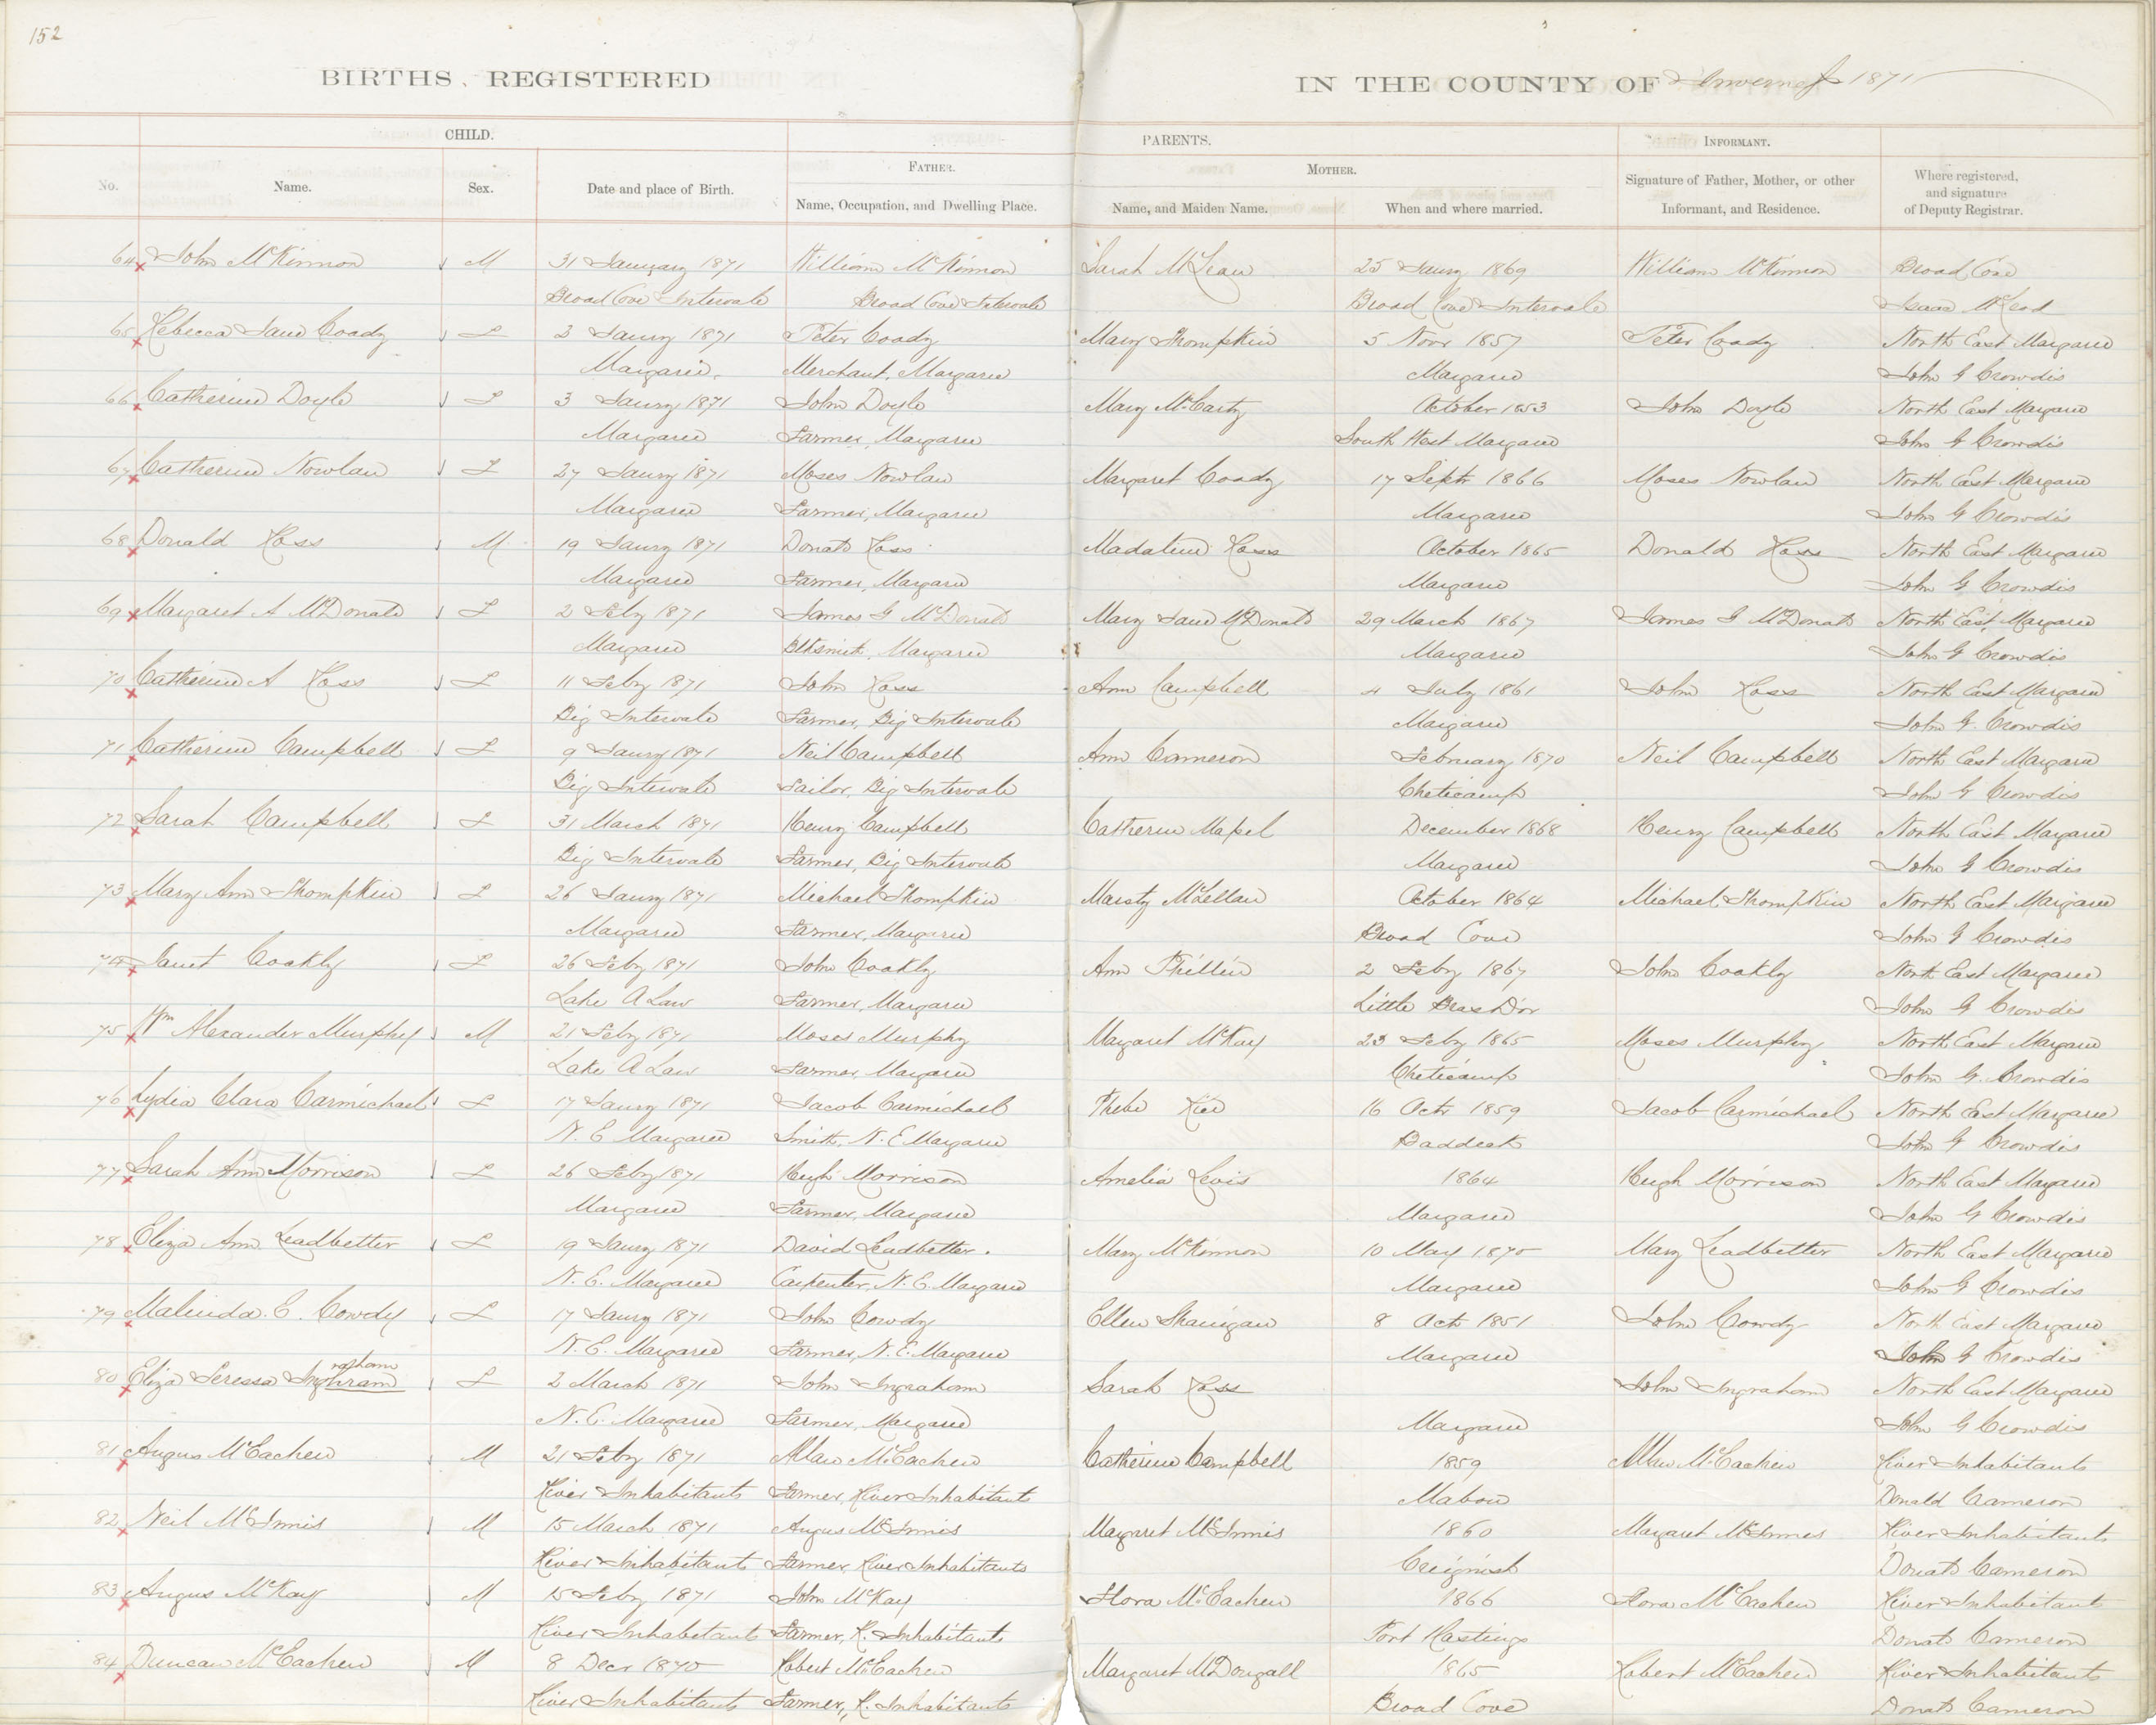 152
BIRTHS REGISTERED IN THE COUNTY OF Inverness 1871
CHILD. PARENTS. INFORMANT.
FATHER. MOTHER.
No. Name. Sex. Date and place of Birth. Name, Occupation, and Dwelling Place. Name, and Maiden Name. When and where married. Signature of Father, Mother, or other Informant, and Residence. Where registered, and signature of Deputy Registrar.
64 John McKinnon M 31 January 1871 William McKinnon Sarah McLean 25 Jany 1869 William McKinnon Broad Cove
Broad Cove Intervale Broad Cove Intervale Broad Cove Intervale Isaac McLeod
65 Rebecca Jane Coady F 3 Jany 1871 Peter Coady Mary Thompkin 5 Novr 1857 Peter Coady North East Margaree
Margaree. Merchant, Margaree Margaree John G Crowdis
66 Catherine Doyle F 3 Jany 1871 John Doyle Mary McCarty October 1853 John Doyle North East Margaree
Margaree Farmer, Margaree South West Margaree John G Crowdis
67 Catherine Nowlan F 27 Jany 1871 Moses Nowlan Margaret Coady 17 Sept 1866 Moses Nowlan North East Margaree
Margaree Farmer, Margaree Margaree John G Crowdis
68 Donald Ross M 19 Jany 1871 Donald Ross Madaline Ross October 1865 Donald Ross North East Margaree
Margaree Farmer, Margaree Margaree John G Crowdis
69 Margaret A McDonald F 2 Feby 1871 James G McDonald Mary Jane McDonald 29 March 1867 James G McDonald North East Margaree
Margaree Blksmith, Margaree Margaree John G Crowdis
70 Catherine A Ross F 11 Feby 1871 John Ross Ann Campbell 4 July 1861 John Ross North East Margaree
Big Intervale Farmer, Big Intervale Margaree John G Crowdis
71 Catherine Campbell F 9 Jany 1871 Neil Campbell Ann Cameron February 1870 Neil Campbell North East Margaree
Big Intervale Tailor, Big Intervale Cheticamp John G Crowdis
72 Sarah Campbell F 31 March 1871 Henry Campbell Catherine Mapel December 1868 Henry Campbell North East Margaree
Big Intervale Farmer, Big Intervale Margaree John G Crowdis
73 Mary Ann Thompkin F 26 Jany 1871 Michael Thompkin Marsty McLellan October 1864 Michael Thompkin North East Margaree
Margaree Farmer, Margaree Broad Cove John G Crowdis
74 Janet Coakly F 26 Feby 1871 John Coakly Ann 2 Feby 1867 John Coakly North East Margaree
Lake A Law Farmer, Margaree Little Bras Dor John G Crowdis
75 Wm Alexander Murphy M 21 Feby 1871 Moses Murphy Margaret McKay 23 Feby 1865 Moses Murphy North East Margaree
Lake A Law Farmer, Margaree Cheticamp John G. Crowdis
76 Lydia Clara Carmichael F 17 Jany 1871 Jacob Carmichael Phebe 16 Octr 1859 Jacob Carmichael North East Margaree
N. E Margaree Smith, N. E Margaree Baddeck John G Crowdis
77 Sarah Ann Morrison F 26 Feby 1871 Hugh Morrison Amelia Levis 1864 Hugh Morrison North East Margaree
Margaree Farmer, Margaree Margaree John G Crowdis
78 Eliza Ann Leadbetter F 19 Jany 1871 David Leadbetter. Mary McKinnon 10 May 1870 Mary Leadbetter North East Margaree
N. E. Margaree Carpenter, N. E. Margaree Margaree John G Crowdis
79 Malinda. E. Cowdy F 17 Jany 1871 John Cowdy Ellen Shanigan 8 Octr 1851 John Cowdy North East Margaree
N. E. Margaree Farmer, N. E. Margaree Margaree John G Crowdis
raham
80 Eliza Teressa Inghram F 2 March 1871 John Ingraham Sarah Ross John Ingraham North East Margaree
N. E. Margaree Farmer, Margaree Margaree John G Crowdis
81 Angus McEachen M 21 Feby 1871 Allan McEachen Catherine Campbell 1859 Allan McEachen River Inhabitants
River Inhabitants Farmer, River Inhabitants Mabou Donald Cameron
82 Neil McInnis M 15 March 1871 Angus McInnis Margaret McInnis 1860 Margaret McInnes River Inhabitants
River Inhabitants Farmer, River Inhabitants Creignish Donald Cameron
83 Angus McKay M 15 Feby 1871 John McKay Flora McEachen 1866 Flora McEachen River Inhabitants
River Inhabitants Farmer, R. Inhabitants Port Hastings Donald Cameron
84 Duncan McEachen M 8 Decr 1870 Robert McEachen Margaret McDougall 1865 Robert McEachen River Inhabitants
River Inhabitants Farmer, R. Inhabitants Broad Cove Donald Cameron